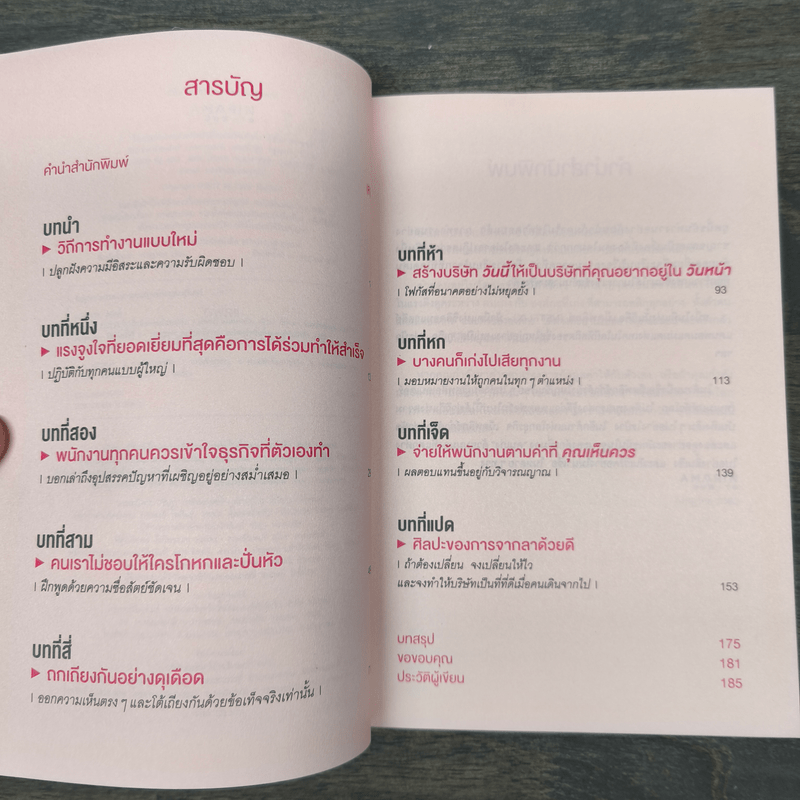 สารบัญ
คำนำสำนักพิมพ์
บทนำ
▶ วิถีการทำงานแบบใหม่
| ปลูกฝังความมีอิสระและความรับผิดชอบ |
บทที่หนึ่ง
▶ แรงจูงใจที่ยอดเยี่ยมที่สุดคือการได้ร่วมทำให้สำเร็จ
| ปฏิบัติกับทุกคนแบบผู้ใหญ่ |
บทที่สอง
▶ พนักงานทุกคนควรเข้าใจธุรกิจที่ตัวเองทำ
| บอกเล่าถึงอุปสรรคปัญหาที่เผชิญอยู่อย่างสม่ำเสมอ |
บทที่สาม
▶ คนเราไม่ชอบให้ใครโกหกและปั่นหัว
| ฝึกพูดด้วยความซื่อสัตย์ชัดเจน |
บทที่สี่
▶ ถกเถียงกันอย่างดุเดือด
| ออกความเห็นตรง ๆ และโต้เถียงกันด้วยข้อเท็จจริงเท่านั้น |
บทที่ห้า
▶ สร้างบริษัท วันนี้ ให้เป็นบริษัทที่คุณอยากอยู่ใน วันหน้า
| โฟกัสที่อนาคตอย่างไม่หยุดยั้ง | 93
บทที่หก
▶ บางคนก็เก่งไปเสียทุกงาน
| มอบหมายงานให้ถูกคนในทุก ๆ ตำแหน่ง | 113
บทที่เจ็ด
▶ จ่ายให้พนักงานตามค่าที่ คุณเห็นควร
| ผลตอบแทนขึ้นอยู่กับวิจารณญาณ | 139
บทที่แปด
▶ ศิลปะของการจากลาด้วยดี
| ถ้าต้องเปลี่ยน จงเปลี่ยนให้ไว
และจงทำให้บริษัทเป็นที่ที่ดีเมื่อคนเดินจากไป | 153
บทสรุป 175
ขอขอบคุณ 181
ประวัติผู้เขียน 185